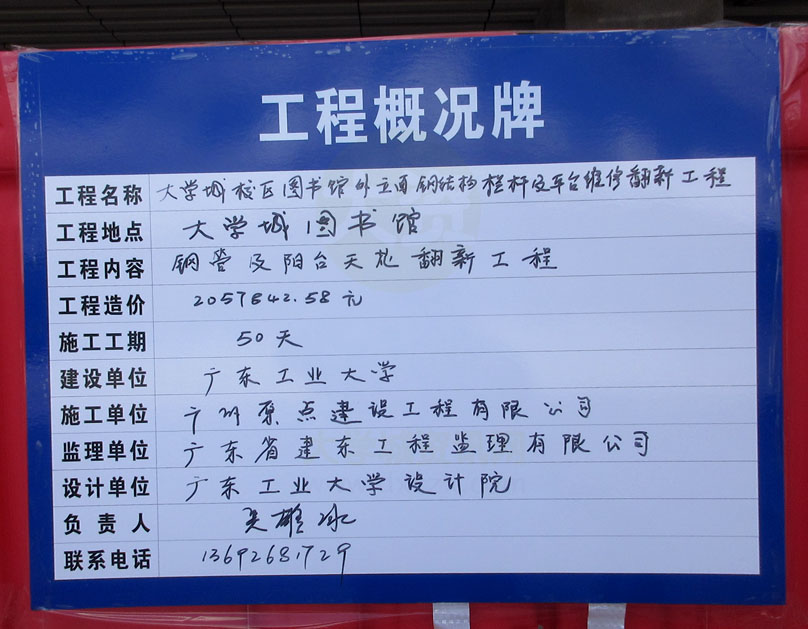 工程概况牌
工程名称 大学城校区图书馆外立面钢结构栏杆及平台维修翻新工程
工程地点 大学城图书馆
工程内容 钢管及阳台天花翻新工程
工程造价 2057842.58元
施工工期 50天
建设单位 广东工业大学
施工单位 广州原点建设工程有限公司
监理单位 广东省建东工程监理有限公司
设计单位 广东工业大学设计院
负责人 雄冰
联系电话 13692681729